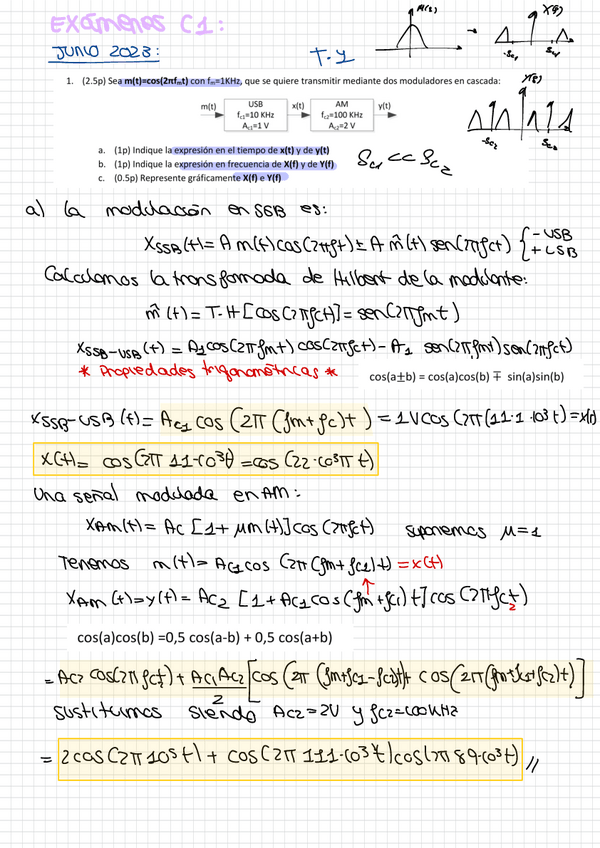 EXÁMENES C1:
M(f)
X(f)
-fc1
fc1
JUNIO 2023:
T.4
Y(f)
1. (2.5p) Sea m(t)=cos(2πfmt) con fm=1KHz, que se quiere transmitir mediante dos moduladores en cascada:
m(t)
USB
fc1=10 KHz
Ac1=1 V
x(t)
AM
fc2=100 KHz
Ac2=2 V
y(t)
-fc2
fc2
a. (1p) Indique la expresión en el tiempo de x(t) y de y(t)
b. (1p) Indique la expresión en frecuencia de X(f) y de Y(f)
c. (0.5p) Represente gráficamente X(f) e Y(f)
fc1 << fc2
a) la modulación en SSB es:
XSSB(t) = A m(t) cos(2πfct) ± A m̂(t) sen(2πfct) { - USB
+ LSB
Calculamos la transformada de Hilbert de la modulante:
m̂(t) = T.H [cos(2πfct)] = sen(2πfmt)
XSSB-USB(t) = A1 cos(2πfmt) cos(2πfct) - A1 sen(2πfmt) sen(2πfct)
* Propiedades trigonométricas *
cos(a±b) = cos(a)cos(b) ∓ sin(a)sin(b)
XSSB-USB(t) = Ac1 cos(2π(fm+fc)t) = 1V cos(2π(11·1·10³t) = x(t)
x(t) = cos(2π 11·10³t) = cos(22·10³πt)
Una señal modulada en AM:
XAM(t) = Ac [1+ μm(t)] cos(2πfct) suponemos μ=1
Tenemos m(t) = Ac1 cos(2π(fm+fc1)t) = x(t)
XAM(t) = y(t) = Ac2 [1+Ac1 cos(fm+fc1)t] cos(2πfc2t)
cos(a)cos(b) =0,5 cos(a-b) + 0,5 cos(a+b)
= Ac2 cos(2πfc2t) + Ac1Ac2/2 [cos(2π(fm+fc1-fc2)t) + cos(2π(fm+fc1+fc2)t)]
sustituimos siendo Ac2=2V y fc2=100kHz
= 2cos(2π10⁵t) + cos(2π 111·10³t) cos(2π 89·10³t) //